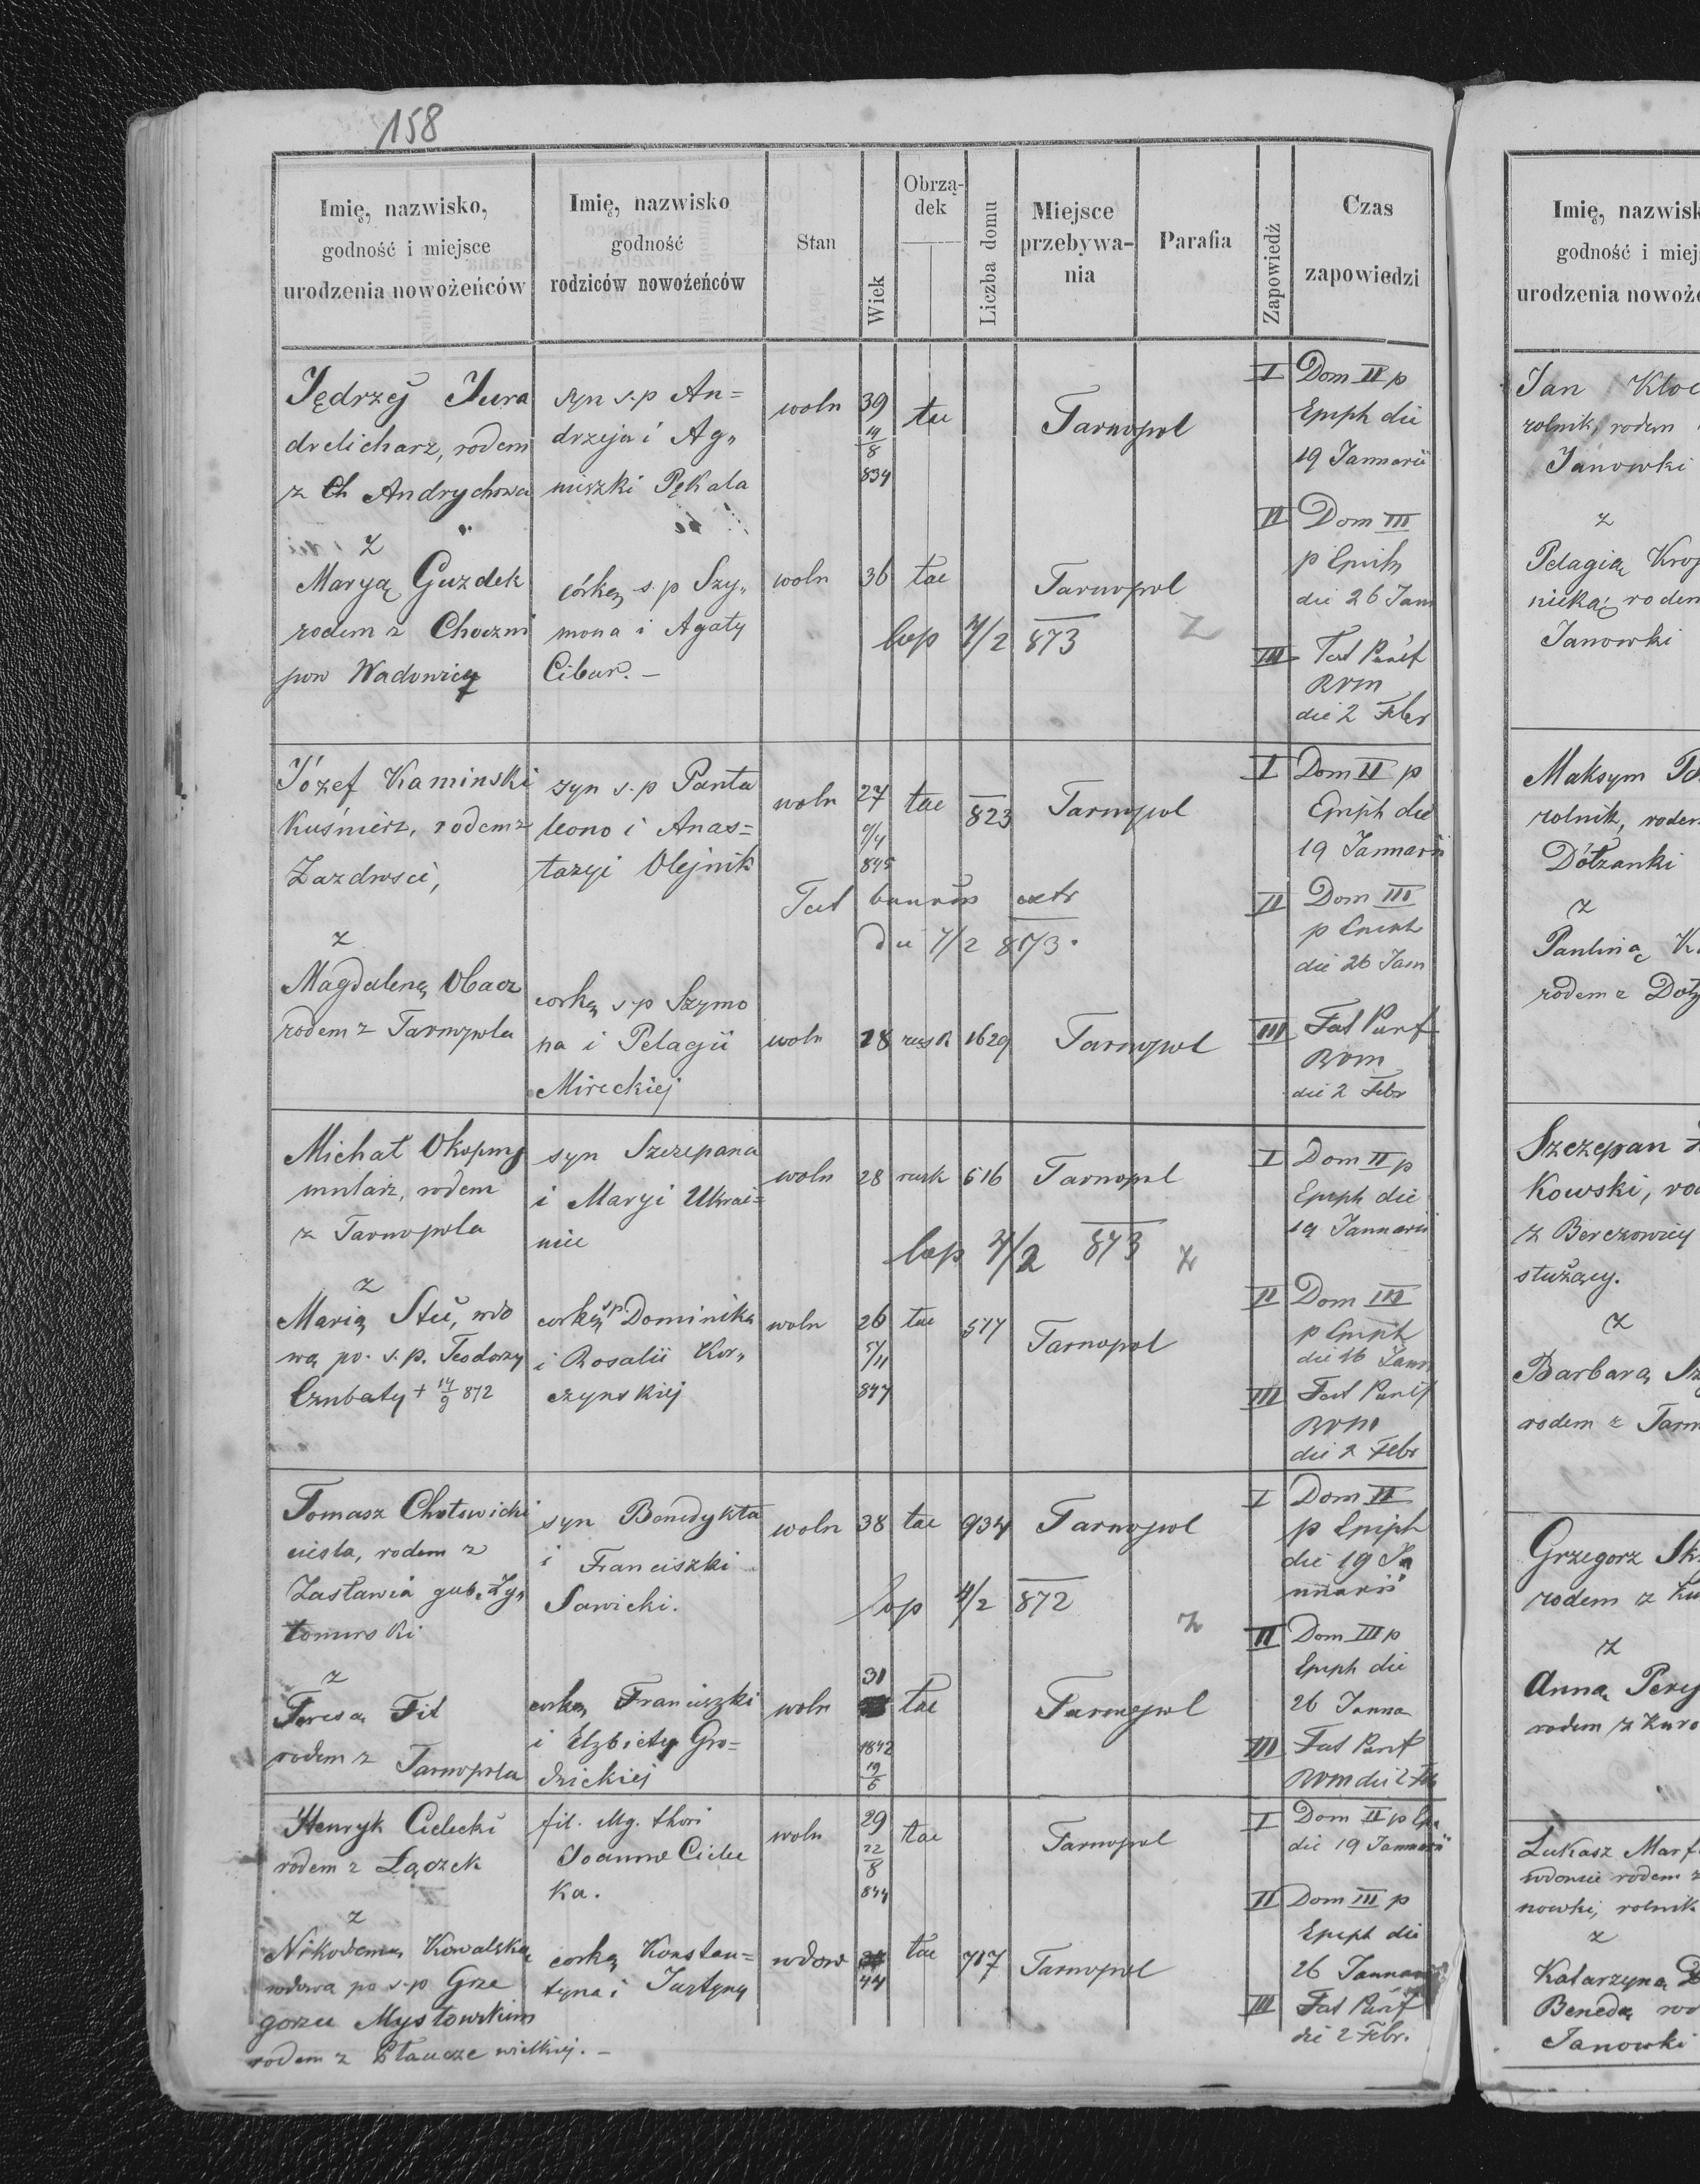 158
Imię, nazwisko,
godność i miejsce
urodzenia nowożeńców
Imię, nazwisko
godność
rodziców nowożeńców
Stan
Wiek
Obrzą-
dek
Liczba domu
Miejsce
przebywa-
nia
Parafia
Zapowiedź
Czas
zapowiedzi
Jędrzéj Jura
drelicharz, rodem
z Andrychowa
z
Maryą Guzdek
rodem z Choczni
pow Wadowicz
syn s.p An=
drzeja i Ag„
niszki Pękala
córką s.p Szy„
mona i Agaty
Cibur. –
woln 39 łac Tarnopol
14/8
834
woln 36 łac Tarnopol
cop 4/2 873 Z
I Dom II p
Epiph die
19 Januarii
II Dom III
p Epiph
die 26 Jan
III Fest Purif
BVM
die 2 Febr
Józef Kaminski
Kuśnierz, rodem z
Zazdrosci,
z
Magdaleną Obacz
rodem z Tarnopola
syn s.p Panta
leona i Anas=
tazyi Olejnik
corką s.p Szymo
na i Pelagii
Mireckiej
woln 27 łac 823 Tarnopol
845
die 4/2 873.
woln 28 rusk 1629 Tarnopol
I Dom II p
Epiph die
19 Januarii
II Dom III
p Epiph
die 26 Jan
III Fest Purif
BVM
die 2 Febr
Michał Okopny
mularz, rodem
z Tarnopola
z
Marią Steć, wdo
wą po. s.p. Teodorzy
Czubaty + 14/9 872
syn Szczepana
i Maryi Ukrai=
nie
corką s.p. Dominika
i Rosalii Kor„
czynskiej
woln 28 rusk 616 Tarnopol
cop 4/2 873 z
woln 26 łac 577 Tarnopol
5/11
847
I Dom II p
Epiph die
19 Januarii
II Dom III
p Epiph
die 26 Janr
III Fest Purif
BVM
die 2 Febr
Tomasz Chotowicki
ciesla, rodem z
Zasławia gub. Ży„
tomirski
z
Teresą Fil
rodem z Tarnopola
syn Benedykta
i Franciszki
Sawicki.
corką Franciszki
i Elzbiety Gro=
dzickiej
woln 38 łac 934 Tarnopol
cop 4/2 872
z
31
woln łac Tarnopol
1842
19/6
I Dom II
p Epiph
die 19 Ja
nuarii
II Dom III p
Epiph die
26 Janna
III Fest Purif
BVM die 2 Feb
Henryk Cielecki
rodem z Łączek
z
Nikodemą Kowalską
wdową po s.p Grze
gorzu Mysłowskim
rodem z Płaucze wielkiej. –
fil.
Joanna Cielec
ka.
corką Konstan=
tyna i Justyny
woln 29 łac Tarnopol
22/8
844
wdow łac 717 Tarnopol
44
I Dom II p Epi
die 19 Januarii
II Dom III p
Epiph die
26 Januar
III Fest Purif
die 2 Febr.
Imię, nazwisk
godność i miej
urodzenia nowoże
Jan
rolnik, rodem
Janowki
z
Pelagią
nicką, rodem
Janowki
Maksym
rolnik, rodem
Dółzanki
z
Pauliną
rodem z
Szczepan
Kowski,
z Berezowicy
służący.
z
Barbarą
rodem z Tarn
Grzegorz
rodem z
z
Anną
rodem z
Łukasz
wdowiec rodem z
nowki, rolnik
z
Katarzyną
Benedą
Janowki